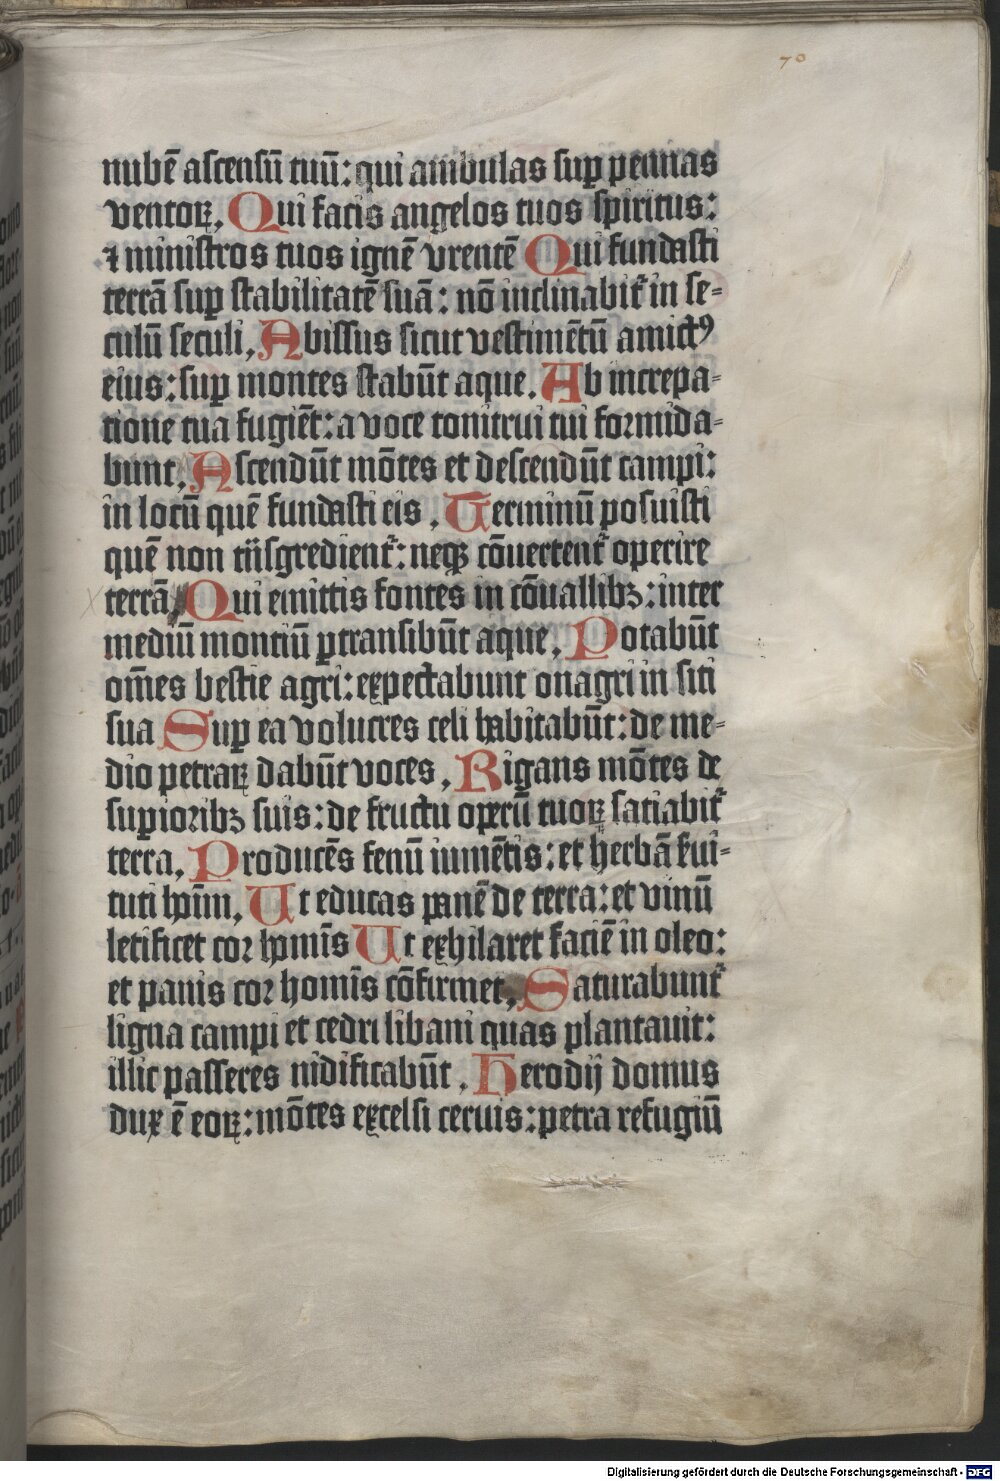 70
nubē ascensū tuū: qui ambulas suꝑ pennas
ventoꝝ, Qui facis angelos tuos spiritus:
⁊ ministros tuos ignē vrentē Qui fundasti
terrā suꝑ stabilitatē suā: nō inclinabit᷑ in se-
culū seculi, Abissus sicut vestimētū amictꝰ
eius: suꝑ montes stabūt aque. Ab increpa-
tione tua fugiēt: a voce tonitrui tui formida-
bunt, Ascendūt mōtes et descendūt campi:
in locū quē fundasti eis, Terminū posuisti
quē non trāsgredient᷑: neqꝫ cōuertent᷑ operire
terrā, Qui emittis fontes in cōuallibꝫ: inter
mediū montiū ꝑtransibūt aque, Potabūt
om̄es bestie agri: expectabunt onagri in siti
sua Suꝑ ea volucres celi habitabūt: de me-
dio petraꝝ dabūt voces, Rigans mōtes de
suꝑioribꝫ suis: de fructu operū tuoꝝ satiabit᷑
terra, Producēs fenū iumētis: et herbā s̓ui-
tuti hoīm, Ut educas panē de terra: et vinū
letificet cor homīs Ut exhilaret faciē in oleo:
et panis cor homīs cōfirmet, Saturabunt᷑
ligna campi et cedri libani quas plantauit:
illic passeres nidificabūt, Herodij domus
dux ē eoꝝ: mōtes excelsi ceruis: petra refugiū
Digitalisierung gefördert durch die Deutsche Forschungsgemeinschaft - DFG